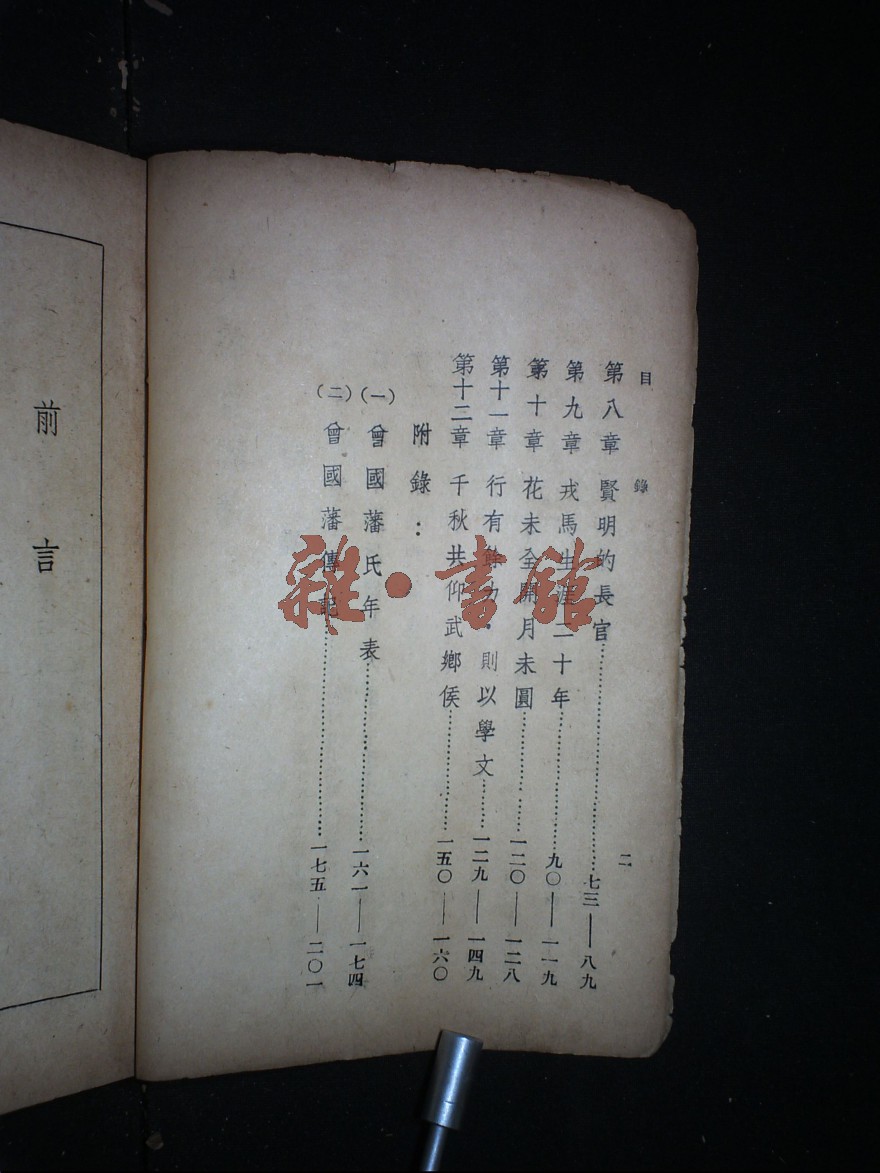 目 錄 二
第八章 賢明的長官……七三——八九
第九章 戎馬生涯二十年……九〇——一一九
第十章 花未全開月未圓……一二〇——一二八
第十一章 行有餘力，則以學文……一二九——一四九
第十二章 千秋共仰武鄉侯……一五〇——一六〇
附錄：
(一) 曾國藩氏年表……一六一——一七四
(二) 曾國藩傳記……一七五——二〇一
前言
雜·書館